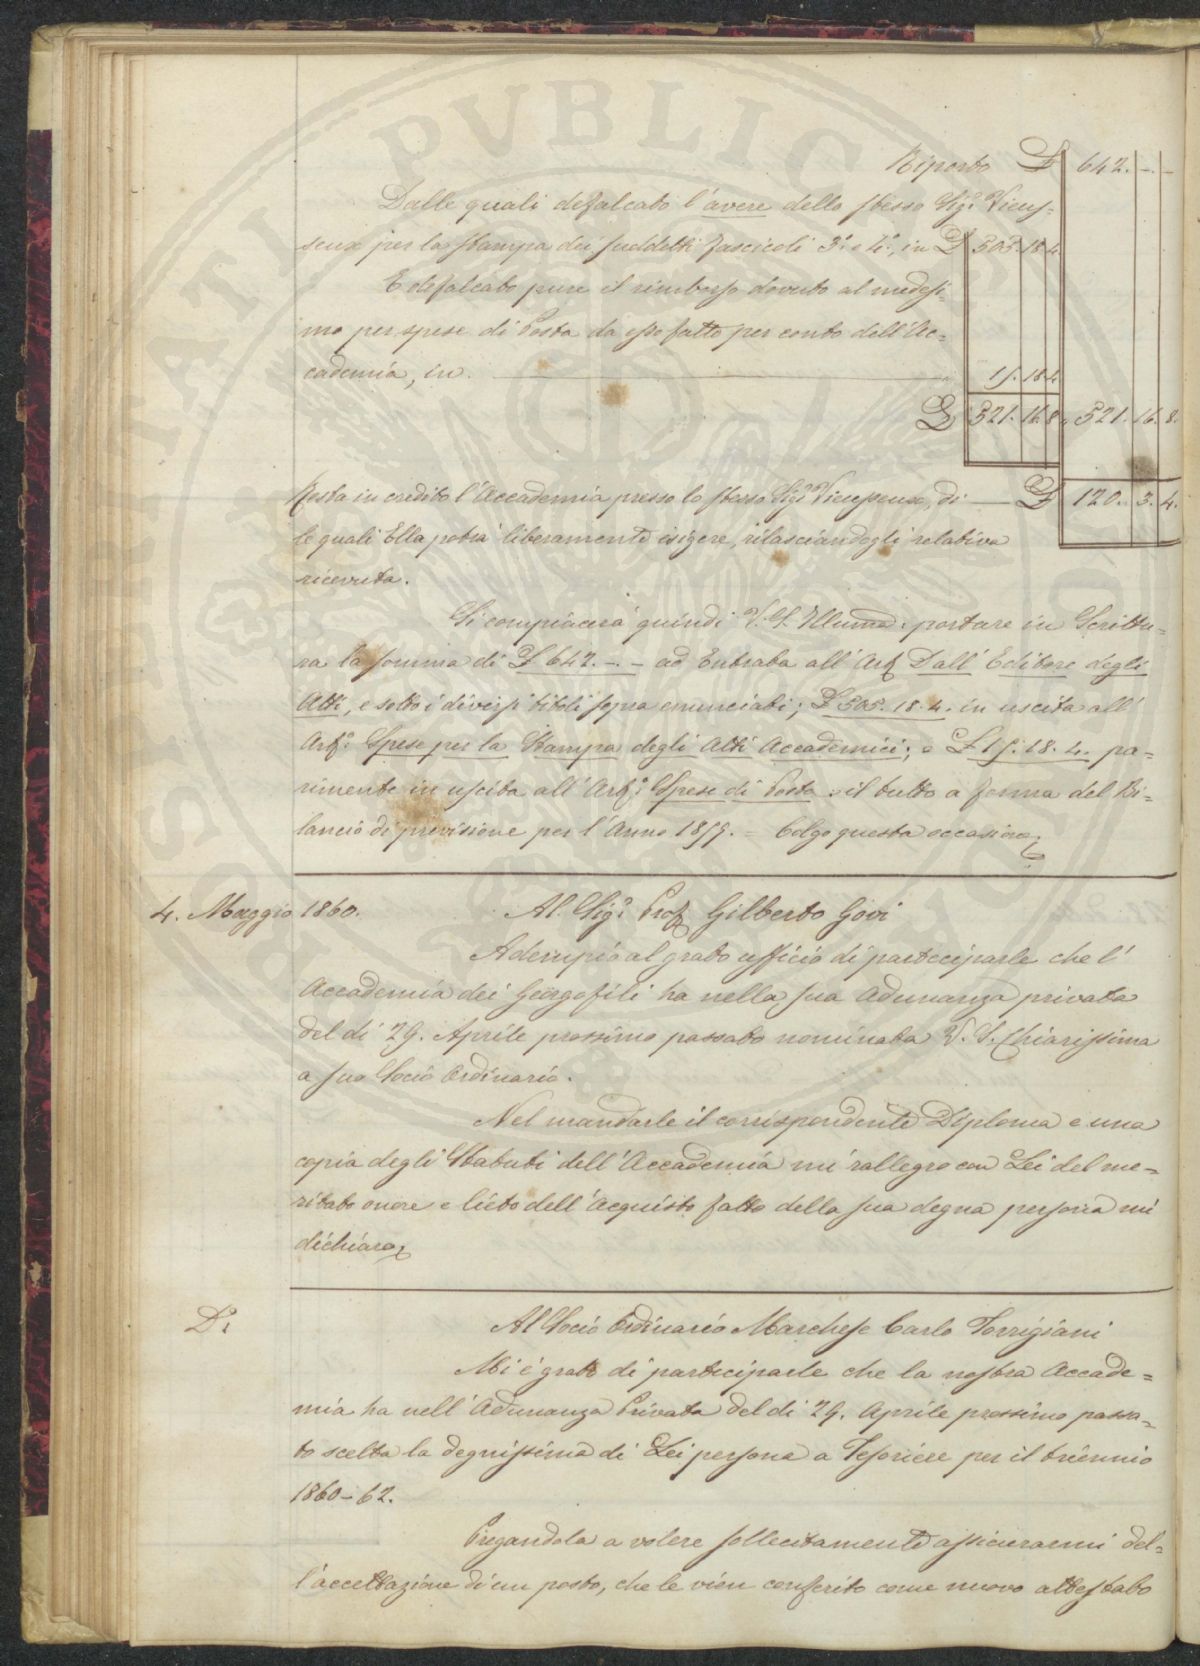 Riporto £ 642. - -
Dalle quali defalcato l'avere dello stesso Sigr. Vieus-
seux per la stampa dei suddetti fascicoli 3.º e 4.º, in £ 505. 18. 4
E defalcato pure il rimborso dovuto al medesi-
mo per spese di Posta da esso fatte per conto dell'Ac=
cademia, in 15. 18. 4
£ 521. 16. 8. 521. 16. 8.
Resta in credito l'Accademia presso lo stesso Sigr. Vieusseux, di £ 120. 3. 4.
le quali Ella potrà liberamente esigere, rilasciandogli relativa
ricevuta.
Si compiacerà quindi V. S. Illuma. portare in Scrittu=
ra la somma di £ 642. - - ad Entrata all'Art. Dall'Editore degli
Atti, e sotto i diversi titoli sopra enunciati; £ 505. 18. 4. in uscita all'
Arto. Spese per la Stampa degli Atti Accademici; e £ 15. 18. 4. pa=
rimente in uscita all'Arto. Spese di Posta: il tutto a forma del Bi=
lancio di previsione per l'Anno 1859. = Colgo questa occasione
4. Maggio 1860. Al Sigr. Prof. Gilberto Govi
Adempio al grato ufficio di participarle che l'
Accademia dei Georgofili ha nella sua Adunanza privata
del dì 29. Aprile prossimo passato nominata V. S. Chiarissima
a suo Socio Ordinario.
Nel mandarle il corrispondente Diploma e una
copia degli Statuti dell'Accademia mi rallegro con Lei del me=
ritato onore e lieto dell'acquisto fatto della sua degna persona mi
dichiaro
Do.
Al Socio Ordinario Marchese Carlo Torrigiani
Mi è grato di participarle che la nostra Accade=
mia ha nell'Adunanza Privata del dì 29. Aprile prossimo passa=
to scelta la degnissima di Lei persona a Tesoriere per il triennio
1860-62.
Pregandola a volere sollecitamente assicurarmi del=
l'accettazione di un posto, che le vien conferito come nuovo attestato